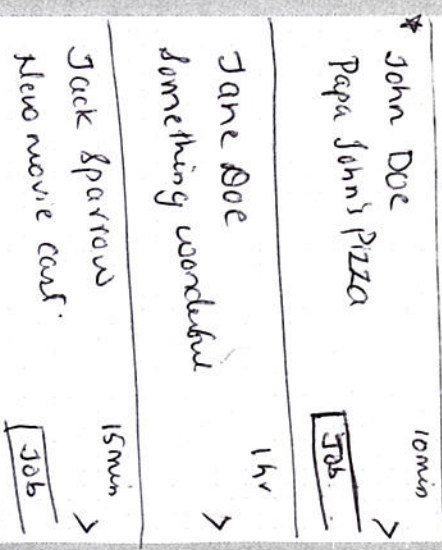 * John Doe
10min >
Papa John's Pizza
Job.
Jane Doe
1hr
Something wonderful
>
Jack Sparrow
15min >
New movie cast.
Job